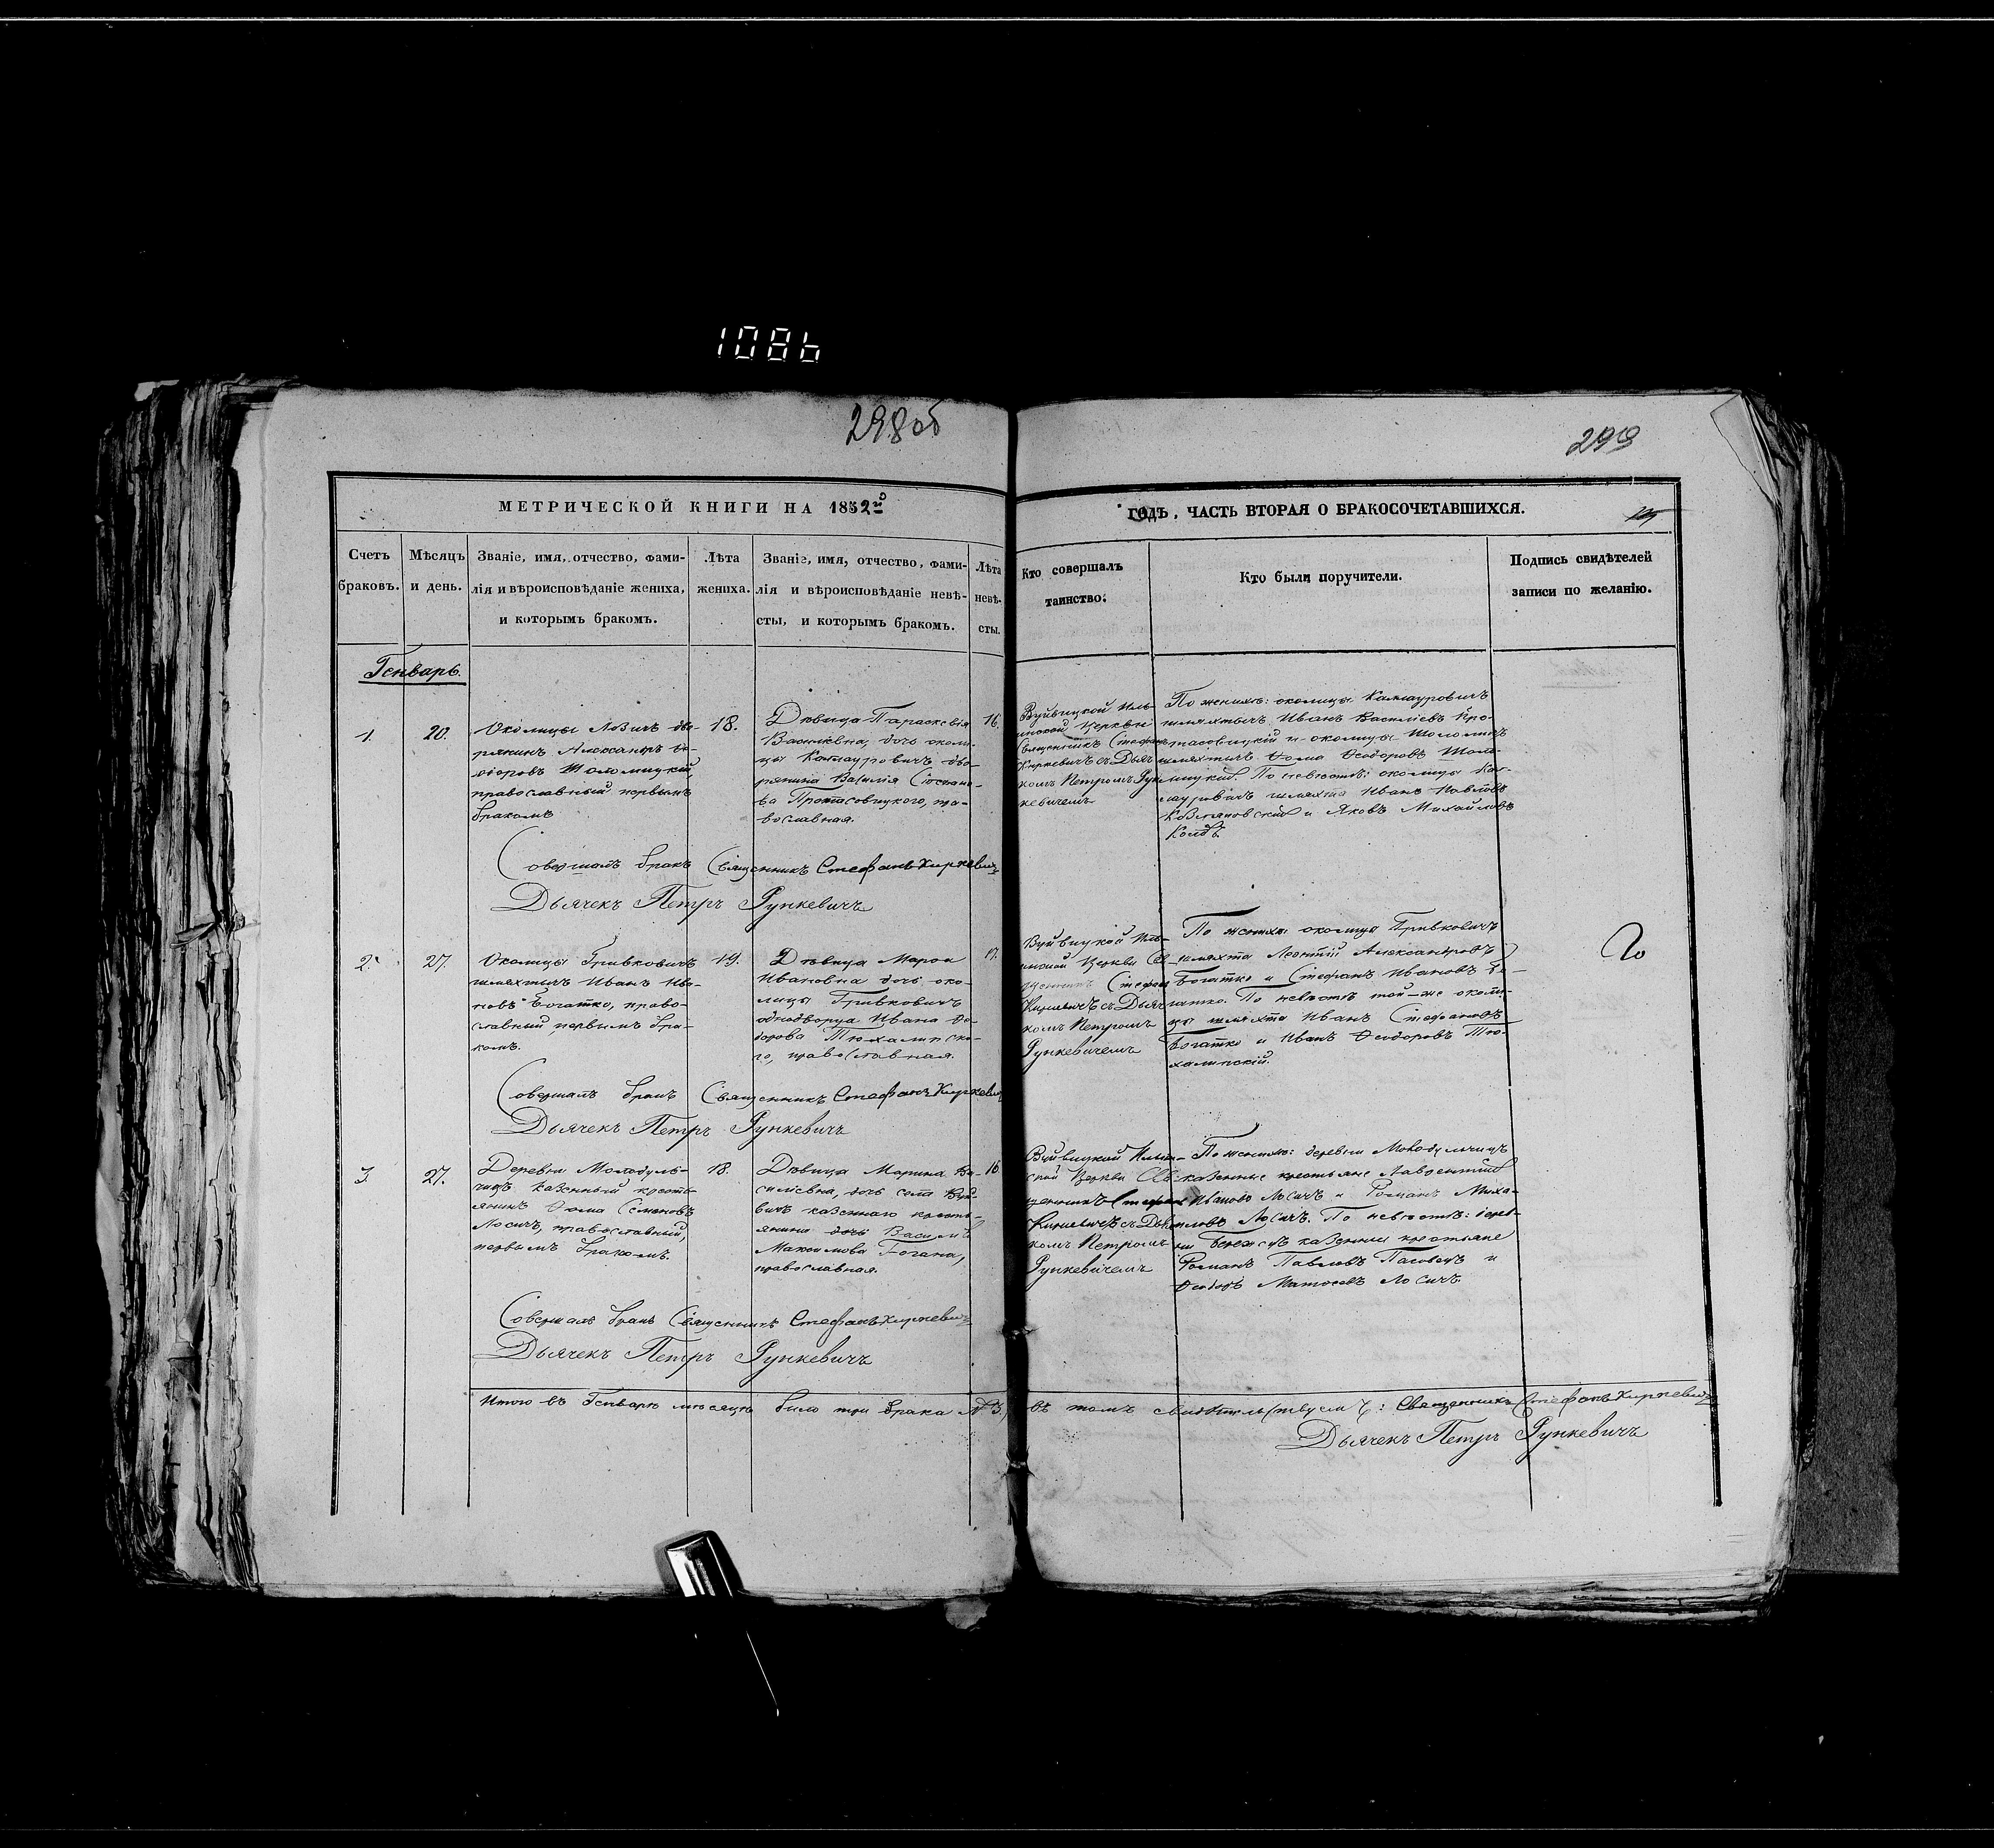 1086
298об
299
МЕТРИЧЕСКОЙ КНИГИ НА 1852й
ГОДЪ, ЧАСТЬ ВТОРАЯ О БРАКОСОЧЕТАВШИХСЯ.
Счетъ
браковъ.
Мѣсяцъ
и день.
Званіе, имя, отчество, фами-
лія и вѣроисповѣданіе жениха,
и которымъ бракомъ.
Лѣта
жениха.
Званіе, имя, отчество, фами-
лія и вѣроисповѣданіе невѣ-
сты, и которымъ бракомъ.
Лѣта
невѣ-
сты.
Кто совершалъ
таинство.
Кто были поручители.
Подпись свидѣтелей
записи по желанію.
Генварь.
1.
20.
Околицы Лозичъ дво-
рянинъ Александръ Ѳе-
одоровъ Шоломицкій,
православный первымъ
бракомъ
18.
Дѣвица Параскевія
Васильевна, дочь околи-
цы Колауровичъ дво-
рянина Василія Стефано-
ва Протасовицкого, пра-
вославная.
16.
Вуйвицкой Иль-
инской Церкви
Священникъ Стефанъ
Киркевичъ съ Дьяч-
комъ Петромъ Рун-
кевичемъ
По женихѣ: околицы Колауровичъ
шляхтичъ Иванъ Васильевъ Про-
тасовицкій и околицы Шоломичъ
шляхтичъ Ѳома Ѳеодоровъ Шоло-
мицкій. По невѣстѣ: околицы Кол-
ауровичъ шляхта Иванъ Павловъ
и Яковъ Михайловъ
Колбъ.
Совершалъ бракъ Священникъ Стефанъ Киркевичъ
Дьячекъ Петръ Рункевичъ
2.
27.
Околицы Гривковичъ
шляхтичъ Иванъ Ива-
новъ Богатко, право-
славный первымъ бра-
комъ.
19.
Дѣвица Марія
Ивановна дочь око-
лицы Гривковичъ
однодворца Ивана Ѳе-
дорова Тюхалинско-
го, православная.
17.
Вуйвицкой Иль-
инской Церкви Свя-
щенникъ Стефанъ
Киркевичъ съ Дьяч-
комъ Петромъ
Рункевичемъ
По женихѣ околица Гривковичъ
шляхта Леонтій Александровъ
Богатко и Стефанъ Ивановъ Бо-
гатко. По невѣстѣ той-же околи-
цы шляхта Иванъ Стефановъ
Богатко и Иванъ Ѳеодоровъ Тю-
халинскій.
Совершалъ бракъ Священникъ Стефанъ Киркевичъ
Дьячекъ Петръ Рункевичъ
3
27.
Деревни Молодуль-
чицъ казенный кресть-
янинъ Ѳома Семеновъ
Лосичъ, православный,
первымъ бракомъ.
18.
Дѣвица Марина Ва-
сильевна, дочь села Вуй-
вичъ казеннаго кресть-
янина дочь Василія
Максимова Гогана,
православная.
16
Вуйвицкой Ильин-
ской Церкви Свя-
щенникъ Стефанъ
Киркевичъ съ Дьяч-
комъ Петромъ
Рункевичемъ
По женихѣ: деревни Молодульчицъ
казенные крестьяне Лаврентій
Ивановъ Лосичъ и Романъ Миха-
иловъ Лосичъ. По невѣстѣ: дерев-
ни Бережецъ казенные крестьяне
Романъ Павловъ Пасовецъ и
Ѳеодоръ Матѳеевъ Лосичъ
Совершалъ бракъ Священникъ Стефанъ Киркевичъ
Дьячекъ Петръ Рункевичъ
Итого въ Генварѣ мѣсяцѣ было три брака № 3, въ томъ свидѣтельствуемъ: Священникъ Стефанъ Киркевичъ
Дьячекъ Петръ Рункевичъ